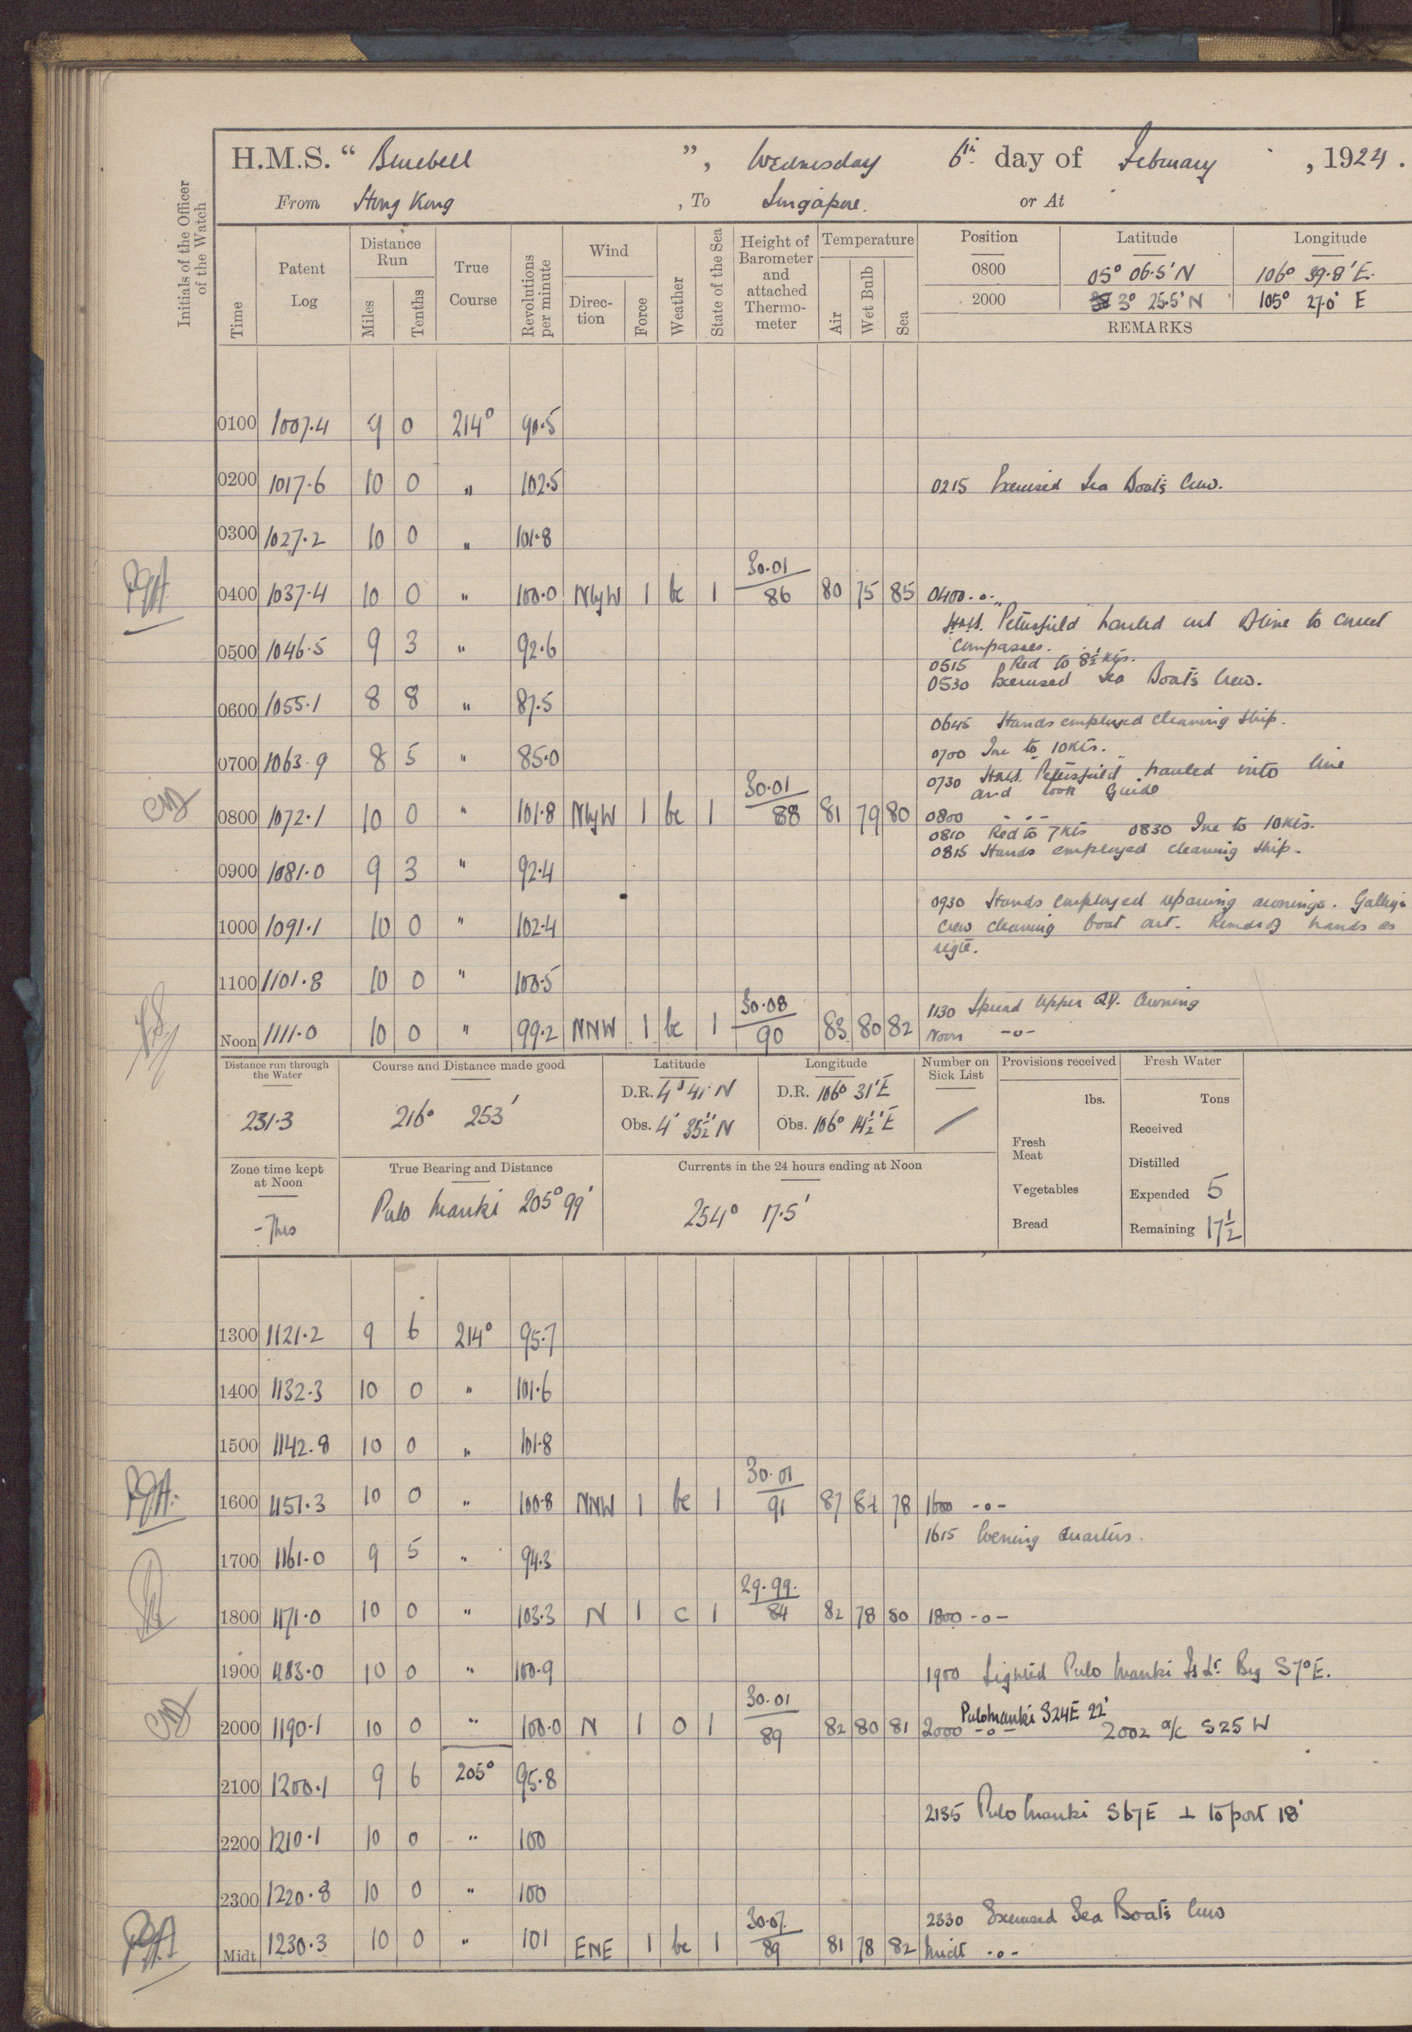 H.M.S. “ Bluebell ”, Wednesday 6th day of February , 1924.
From Hong Kong , To Singapore. or At
Initials of the Officer of the Watch
Time Patent Log Distance Run Miles Tenths True Course Revolutions per minute Wind Direction Force Weather State of the Sea Height of Barometer and attached Thermometer Temperature Air Wet Bulb Sea
Position Latitude Longitude
0800 05° 06.5' N 106° 39.8' E.
2000 3° 25.5' N 105° 27.0' E
REMARKS
0100 1007.4 9 0 214° 90.5
0200 1017.6 10 0 " 102.5 0215 Exercised Sea Boat's Crew.
0300 1027.2 10 0 " 101.8
0400 1037.4 10 0 " 100.0 NbyW 1 bc 1 30.01/86 80 75 85 0400 -o-
H.M.S. Petersfield hauled out of line to correct
compasses.
0500 1046.5 9 3 " 92.6
0515 Red to 8½ Kts.
0530 Exercised Sea Boat's Crew.
0600 1055.1 8 8 " 87.5
0645 Hands employed cleaning ship.
0700 1063.9 8 5 " 85.0 0700 Inc to 10 Kts.
0730 H.M.S. "Petersfield" hauled into line
and took Guide
0800 1072.1 10 0 " 101.8 NbyW 1 bc 1 30.01/88 81 79 80 0800 -..-
0810 Red to 7 Kts 0830 Inc to 10 Kts.
0815 Hands employed cleaning ship.
0900 1081.0 9 3 " 92.4
0930 Hands employed repairing awnings. Galley's
1000 1091.1 10 0 " 102.4 crew cleaning boat out. Remdr of hands as
reqte.
1100 1101.8 10 0 " 100.5
1130 Spread Upper QD. Awning
Noon 1111.0 10 0 " 99.2 NNW 1 bc 1 30.08/90 83 80 82 Noon -o-
Distance run through the Water 231.3
Course and Distance made good 216° 253'
Latitude D.R. 4° 41' N Obs. 4° 35½' N
Longitude D.R. 106° 31' E Obs. 106° 14½' E
Number on Sick List /
Provisions received lbs. Fresh Meat Vegetables Bread
Fresh Water Tons Received Distilled Expended 5 Remaining 17½
Zone time kept at Noon -7hrs
True Bearing and Distance Pulo Manki 205° 99'
Currents in the 24 hours ending at Noon 254° 17.5'
1300 1121.2 9 6 214° 95.7
1400 1132.3 10 0 " 101.6
1500 1142.8 10 0 " 101.8
1600 1151.3 10 0 " 100.8 NNW 1 bc 1 30.01/91 87 82 78 1600 -o-
1615 Evening Quarters.
1700 1161.0 9 5 " 94.3
1800 1171.0 10 0 " 103.3 N 1 c 1 29.99./84 82 78 80 1800 -o-
1900 1183.0 10 0 " 100.9 1900 Sighted Pulo Manki Is Lt. Brg S7°E.
Pulo Manki S24E 22'
2000 1190.1 10 0 " 100.0 N 1 O 1 30.01/89 82 80 81 2000 -o- 2002 a/c S25W
2100 1200.1 9 6 205° 95.8
2135 Pulo Manki S67E ⊥ to port 18'
2200 1210.1 10 0 " 100
2300 1220.8 10 0 " 100
2330 Exercised Sea Boat's Crew
Midt 1230.3 10 0 " 101 ENE 1 bc 1 30.07/89 81 78 82 Midt -o-